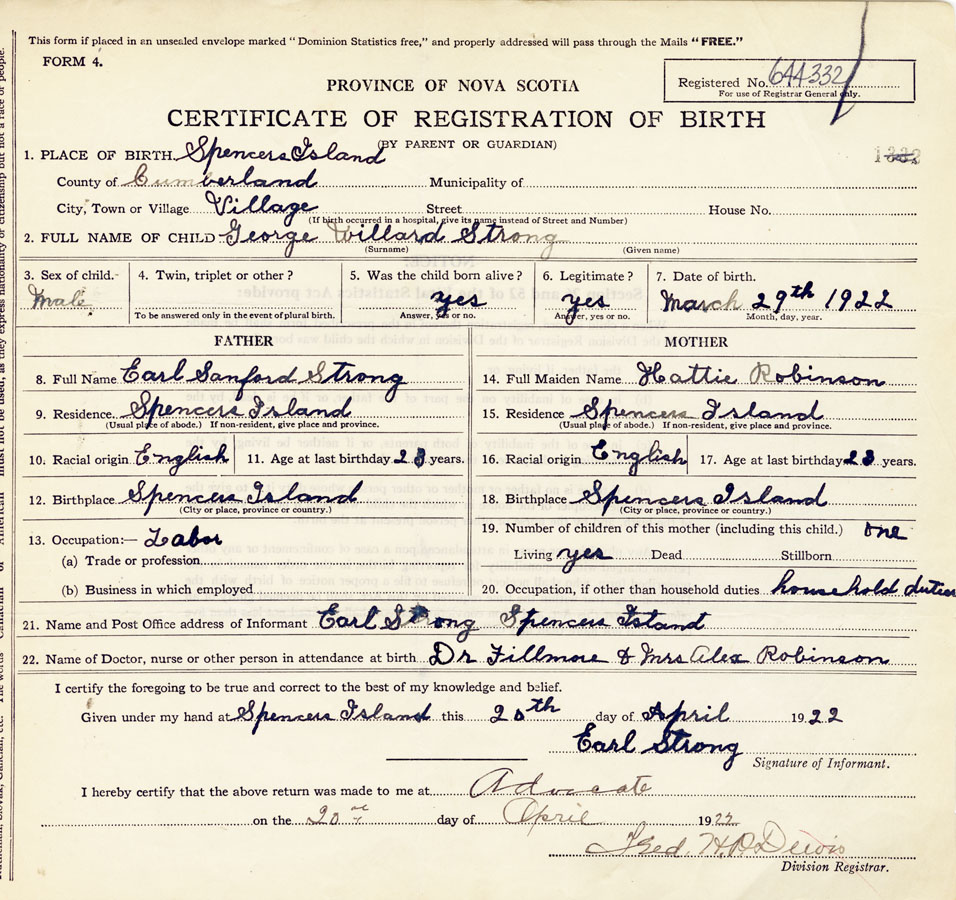 This form if placed in an unsealed envelope marked "Dominion Statistics free," and properly addressed will pass through the Mails "FREE."
FORM 4.
Registered No. 644332
For use of Registrar General only.
PROVINCE OF NOVA SCOTIA
CERTIFICATE OF REGISTRATION OF BIRTH
(BY PARENT OR GUARDIAN)
1. PLACE OF BIRTH. Spencers Island
County of Cumberland Municipality of
City, Town or Village Village Street House No.
(If birth occurred in a hospital, give its name instead of Street and Number)
2. FULL NAME OF CHILD George Willard Strong
(Surname) (Given name)
3. Sex of child. 4. Twin, triplet or other? 5. Was the child born alive? 6. Legitimate? 7. Date of birth.
Male yes yes March 29th 1922
To be answered only in the event of plural birth. Answer, yes or no. Answer, yes or no. Month, day, year.
FATHER MOTHER
8. Full Name Earl Sanford Strong 14. Full Maiden Name Hattie Robinson
9. Residence. Spencers Island 15. Residence Spencers Island
(Usual place of abode.) If non-resident, give place and province. (Usual place of abode.) If non-resident, give place and province.
10. Racial origin English 11. Age at last birthday 23 years. 16. Racial origin English 17. Age at last birthday 23 years.
12. Birthplace Spencers Island 18. Birthplace Spencers Island
(City or place, province or country.) (City or place, province or country.)
13. Occupation:— Labor 19. Number of children of this mother (including this child.) one
(a) Trade or profession Living yes Dead Stillborn
(b) Business in which employed 20. Occupation, if other than household duties household duties
21. Name and Post Office address of Informant Earl Strong Spencers Island
22. Name of Doctor, nurse or other person in attendance at birth Dr Fillmore & Mrs Alex Robinson
I certify the foregoing to be true and correct to the best of my knowledge and belief.
Given under my hand at Spencers Island this 20th day of April 1922
Earl Strong
Signature of Informant.
I hereby certify that the above return was made to me at Advocate
on the 20 day of April 1922
Division Registrar.